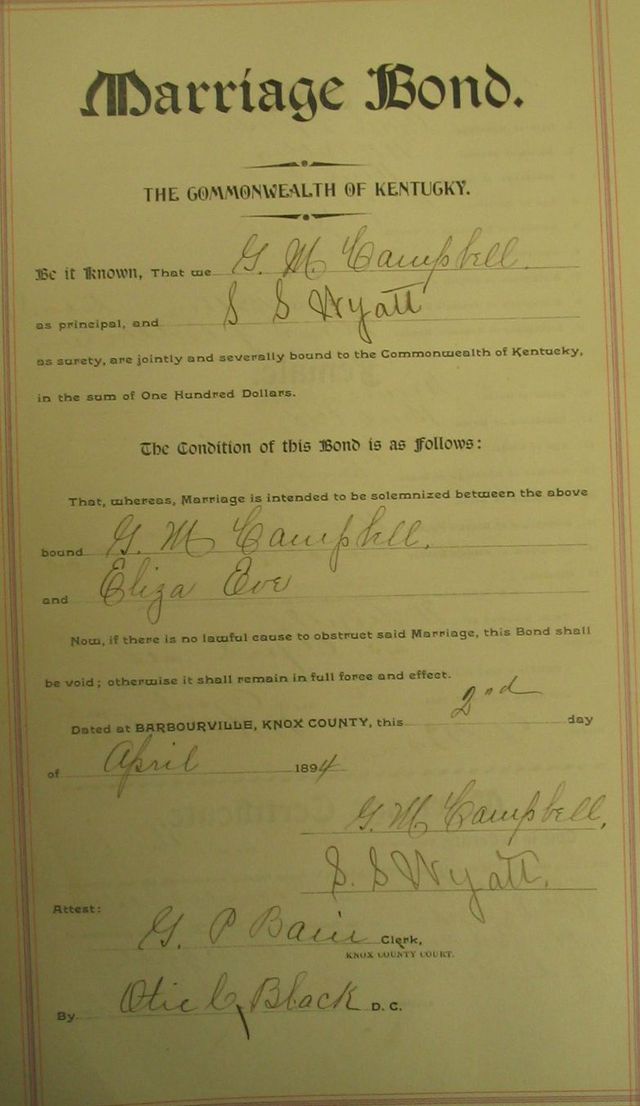 Marriage Bond.
THE COMMONWEALTH OF KENTUCKY.
Be it Known, That we G. M. Campbell.
as principal, and S S Wyatt
as surety, are jointly and severally bound to the Commonwealth of Kentucky,
in the sum of One Hundred Dollars.
The Condition of this Bond is as Follows:
That, whereas, Marriage is intended to be solemnized between the above
bound G. M Campbell.
and Eliza Eve
Now, if there is no lawful cause to obstruct said Marriage, this Bond shall
be void; otherwise it shall remain in full force and effect.
Dated at BARBOURVILLE, KNOX COUNTY, this 2nd day
of April 1894
G. M Campbell,
S. S Wyatt.
Attest:
G. P Bain Clerk,
KNOX COUNTY COURT.
By Black D. C.